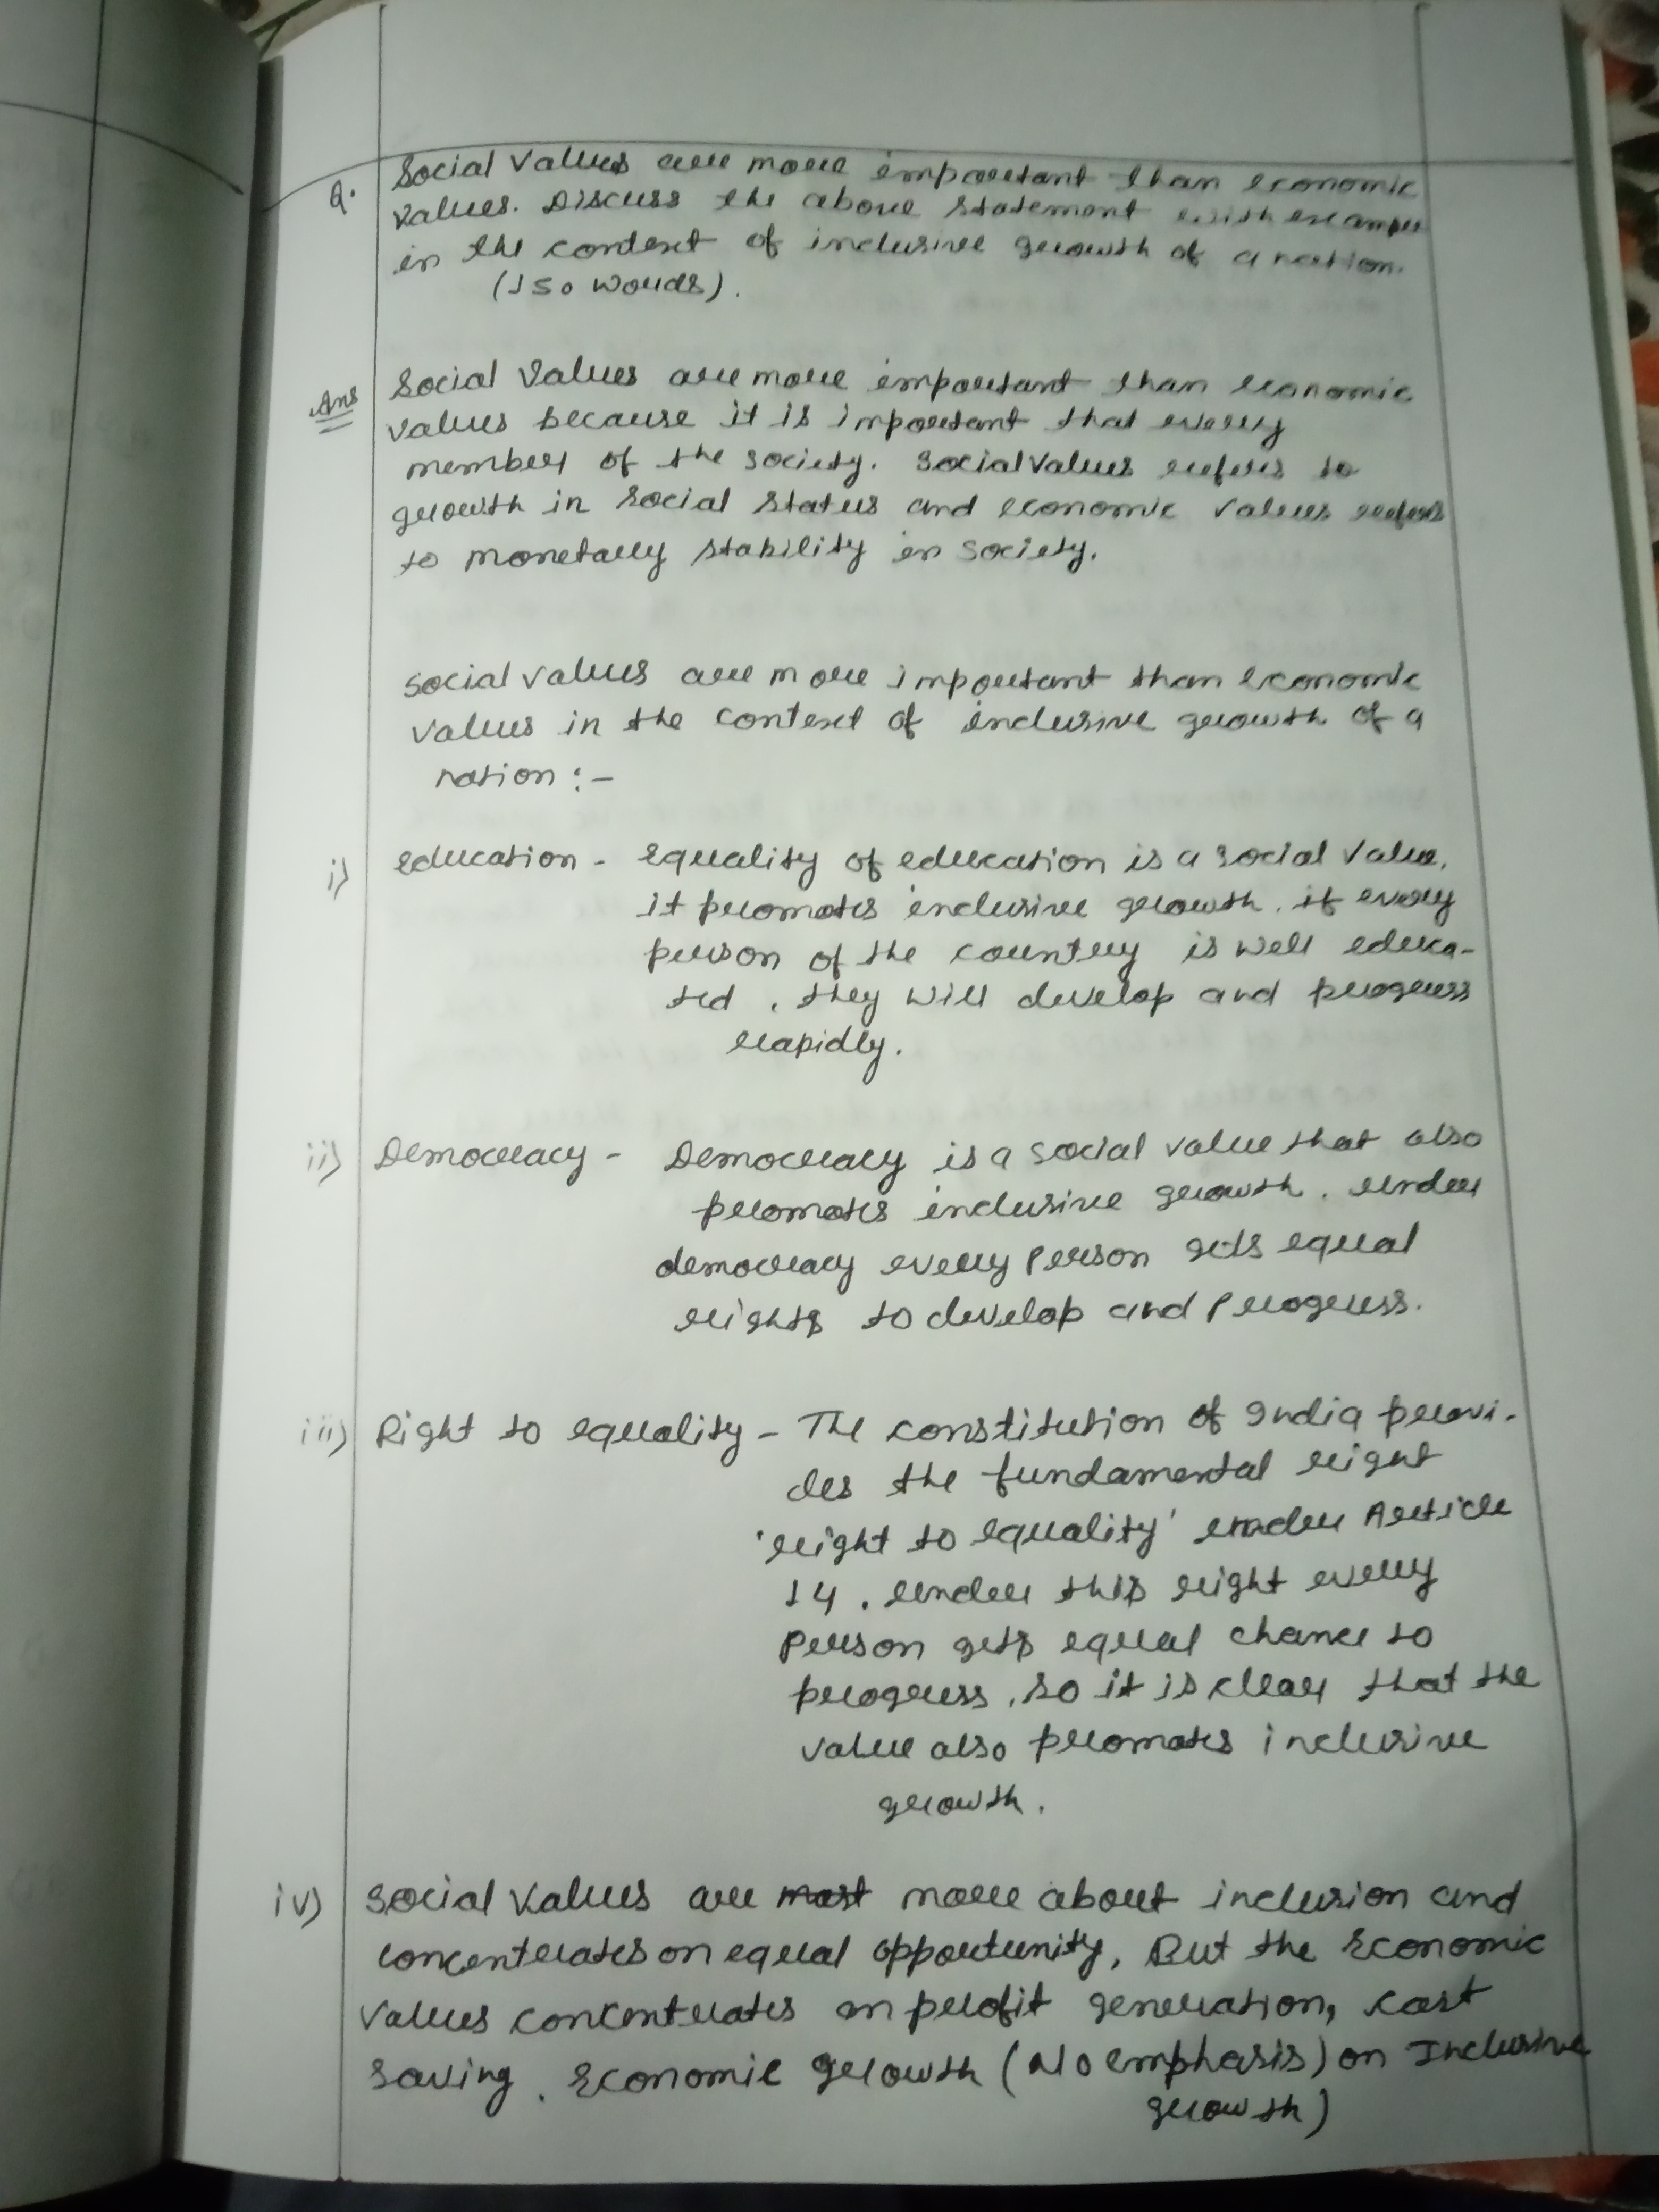 Q. Social Values are more important than economic
values. Discuss the above statement with examples
in the context of inclusive growth of a nation.
(150 words).
Ans Social Values are more important than economic
values because it is important that every
member of the society. Social Values refers to
growth in social status and economic values refers
to monetary stability in society.
social values are more important than economic
values in the context of inclusive growth of a
nation :-
i) education - equality of education is a social value.
it promotes inclusive growth. if every
person of the country is well educa-
ted , they will develop and progress
rapidly.
ii) Democracy - Democracy is a social value that also
promotes inclusive growth. under
democracy every person gets equal
rights to develop and progress.
iii) Right to equality - The constitution of India provi-
des the fundamental right
'right to equality' under Article
14. under this right every
person gets equal chance to
progress, so it is clear that the
value also promotes inclusive
growth.
iv) social values are most more about inclusion and
concentrates on equal opportunity, But the economic
values concentrates on profit generation, cost
saving. Economic growth (No emphasis) on Inclusive
growth)